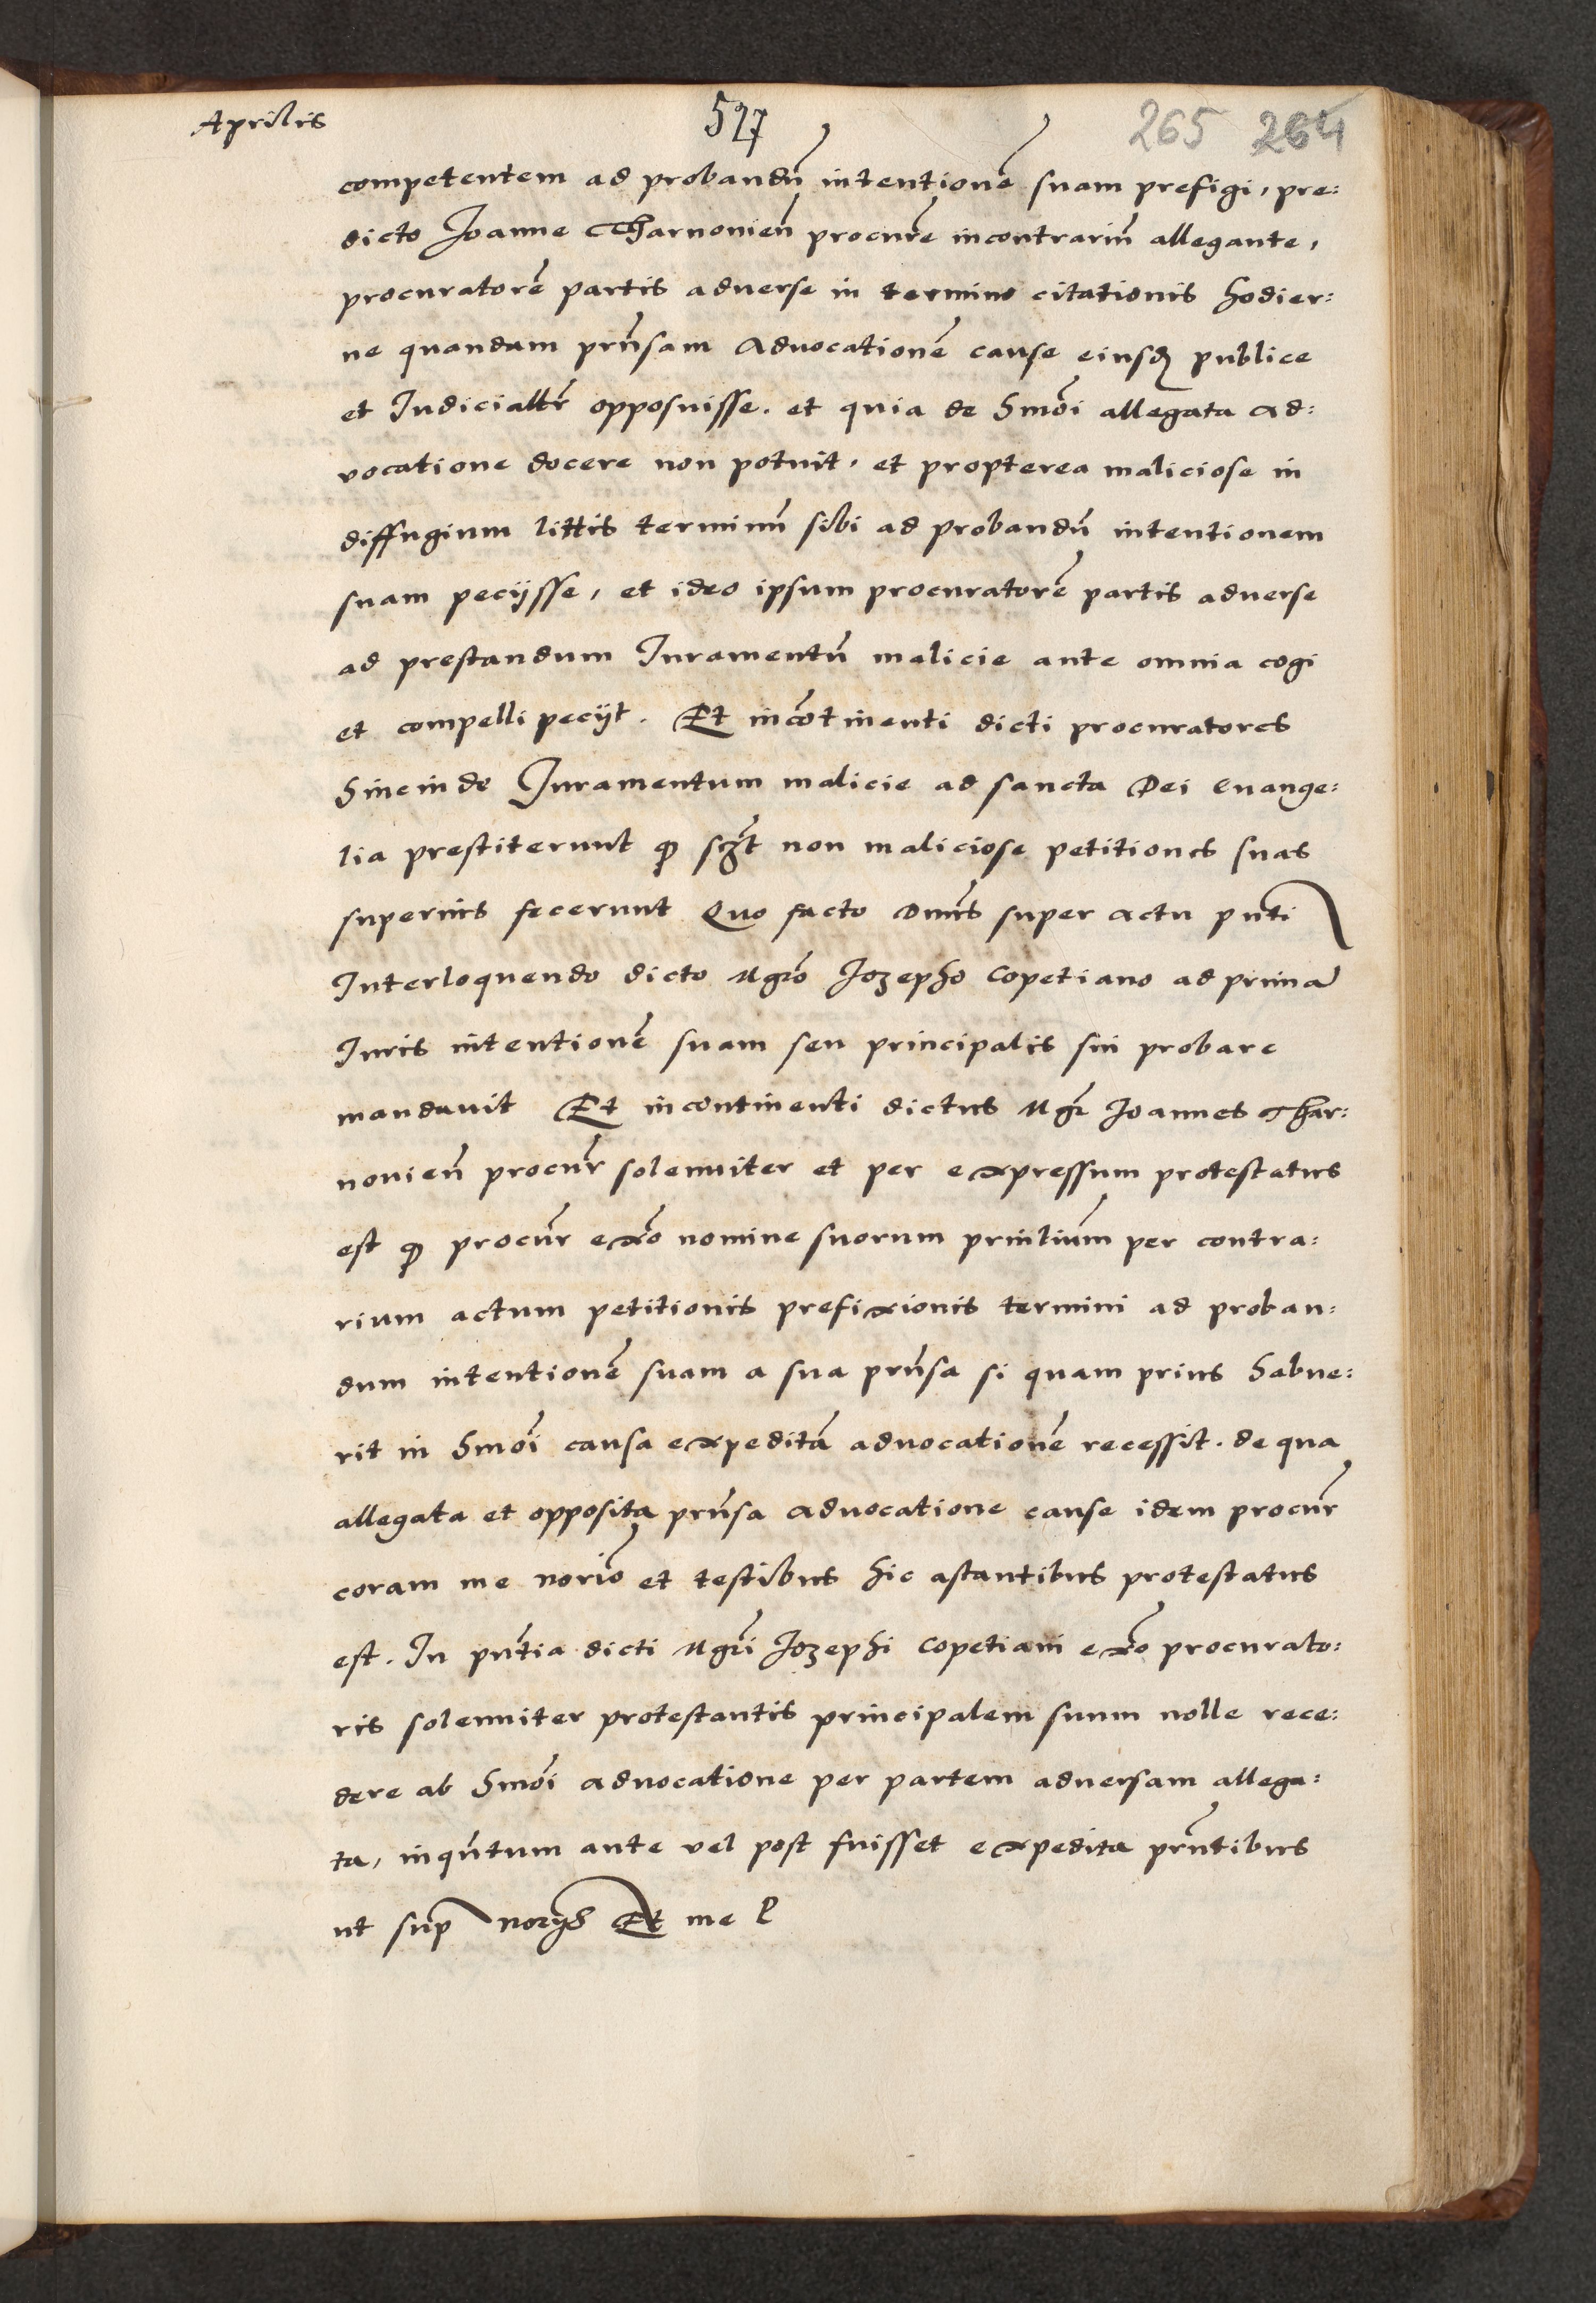 Aprilis
527
265 264
competentem ad probandũ intentionẽ suam prefigi, pre:
dicto Joanne Tharnovieñ procurẽ incontrariũ allegante,
procuratorẽ partis adverse in termino citationis hodier:
ne quandam prñsam Advocationẽ cause eiusđ publice
et Judicialtr̃ opposuisse. et quia de hmõi allegata ad:
vocatione docere non potuit, et propterea maliciose in
diffugium littis terminũ sibi ad probandũ intentionem
suam pecijsse, et ideo ipsum procuratorẽ partis adverse
ad prestandum Juramentũ malicie ante omnia cogi
et compelli pecijt. Et incõtinenti dicti procuratores
hincinde Juramentum malicie ad sancta Dei Evange:
lia prestiterunt ꝙ sczt non maliciose petitiones suas
superius fecerunt Quo facto Dnũs super actu pñti
Interloquendo dicto Mgrõ Jozepho Copetiano ad prima
Juris intentionẽ suam seu principalis sui probare
mandavit Et incontinenti dictus Mgr̃ Joannes Thar:
novieñ procur̃ solenniter et per expressum protestatus
est ꝙ procur̃ exrõ nomine suorum prinliũm per contra:
rium actum petitionis prefixionis termini ad proban:
dum intentionẽ suam a sua prñsa si quam prius habue:
rit in hmõi causa expeditã advocationẽ recessit. de qua
allegata et opposita prñsa advocatione cause idem procur̃
coram me norio et testibus hic astantibus protestatus
est. In pñtia dicti Mgrĩ Jozephi Copetiani exrõ procurato:
ris solenniter protestantis principalem suum nolle rece:
dere ab hmõi advocatione per partem adversam allega:
ta, inqñtum ante vel post fuisset expedita prñtibus
ut sup norijs Et me